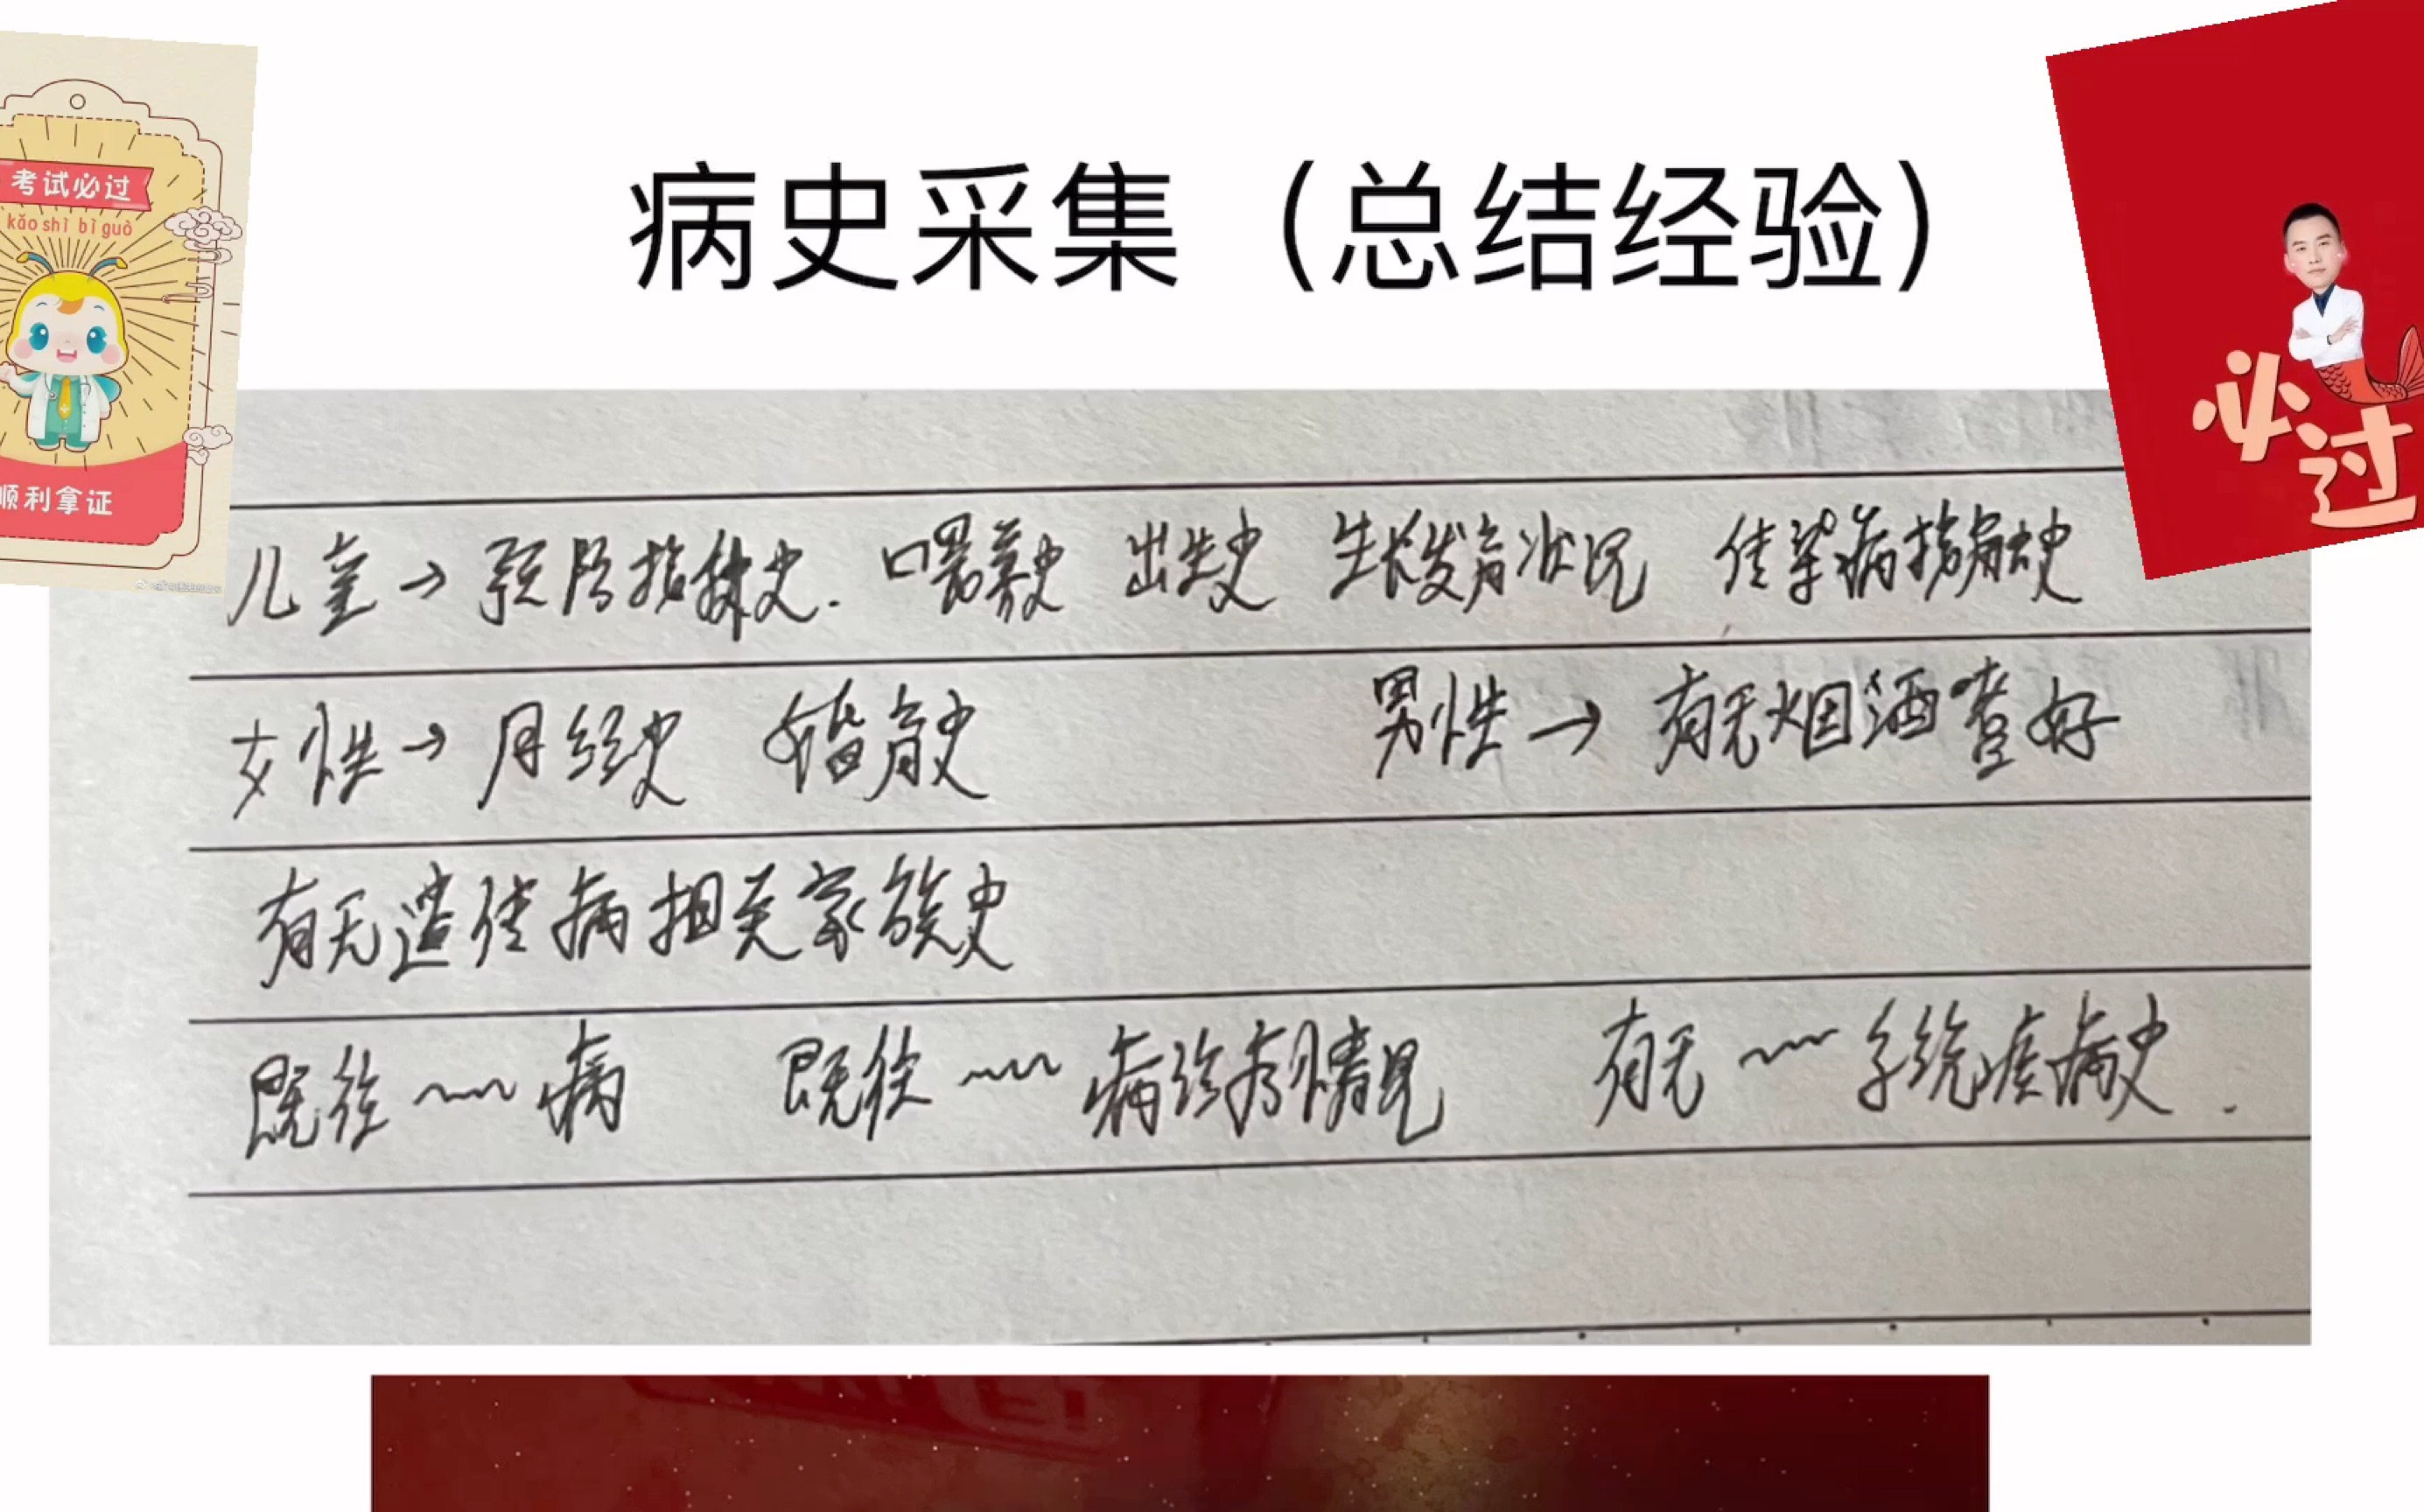 病史采集（总结经验）
考试必过
kǎo shì bì guò
顺利拿证
必过
儿童→预防接种史. 喂养史 出生史 生长发育状况 传染病接触史
女性→月经史 婚育史 男性→有无烟酒嗜好
有无遗传病相关家族史
既往~~病 既往~~病诊疗情况 有无~~系统疾病史.